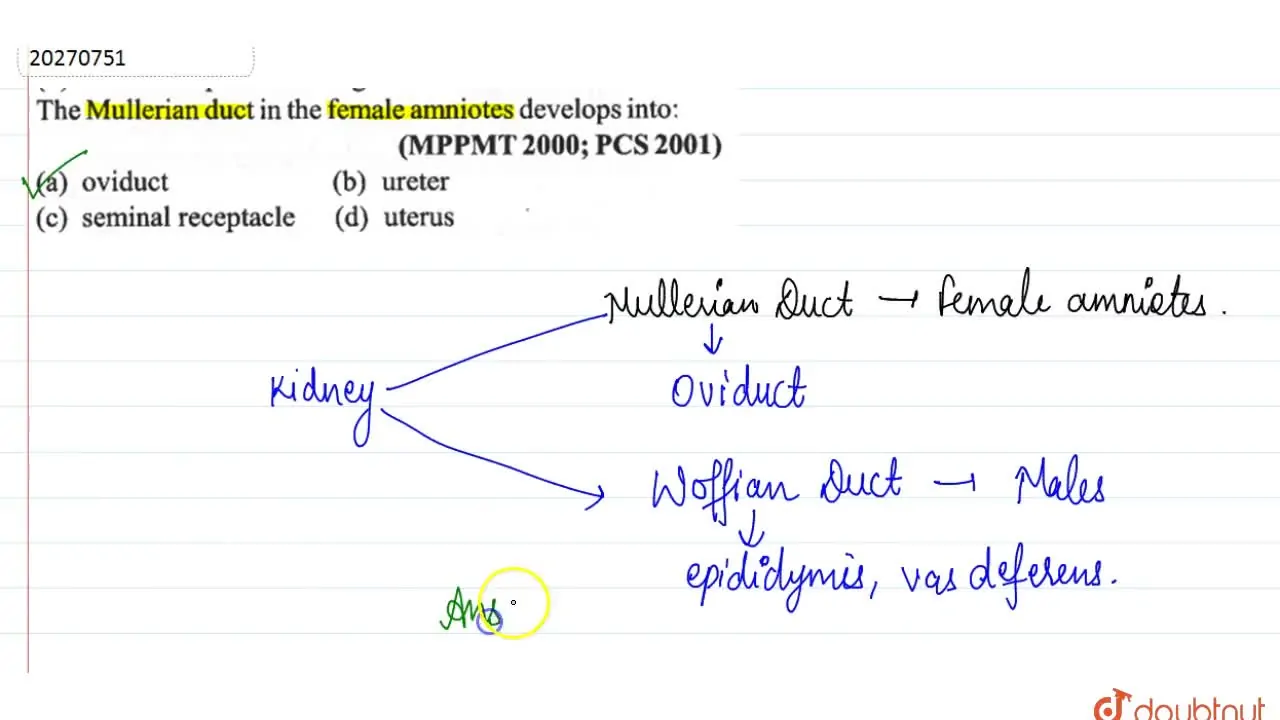 20270751
The Mullerian duct in the female amniotes develops into:
(MPPMT 2000; PCS 2001)
(a) oviduct (b) ureter
(c) seminal receptacle (d) uterus
Mullerian Duct → Female amniotes.
↓
Kidney Oviduct
Woffian Duct → Males
↓
epididymis, vas deferens.
Ans
doubtnut